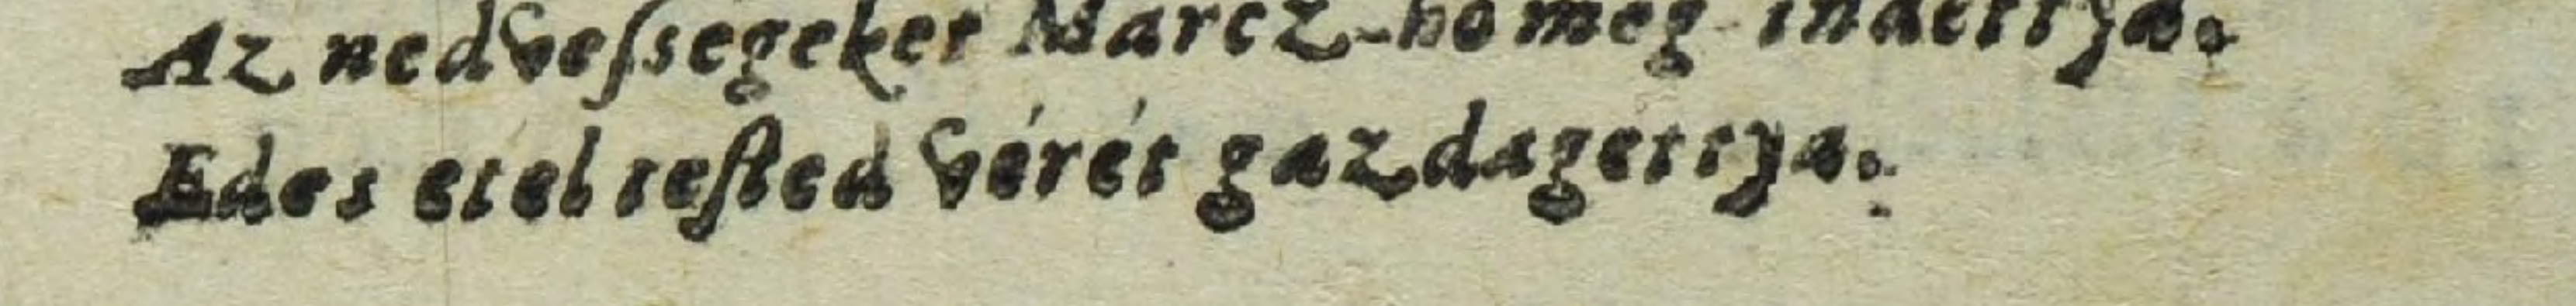 Az nedveſsegeket Marcz-ho meg-indettya.
Edes etel teſted vérét gazdagettya.